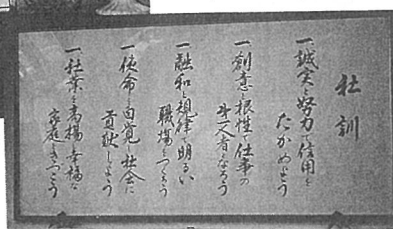 社訓
一誠実と努力で信用を
たかめよう
一創意と根性で仕事の
第一人者になろう
一融和と規律で明るい
職場をつくろう
一使命を自覚し社会に
貢献しよう
一社業を高揚し幸福な
家庭をきづこう